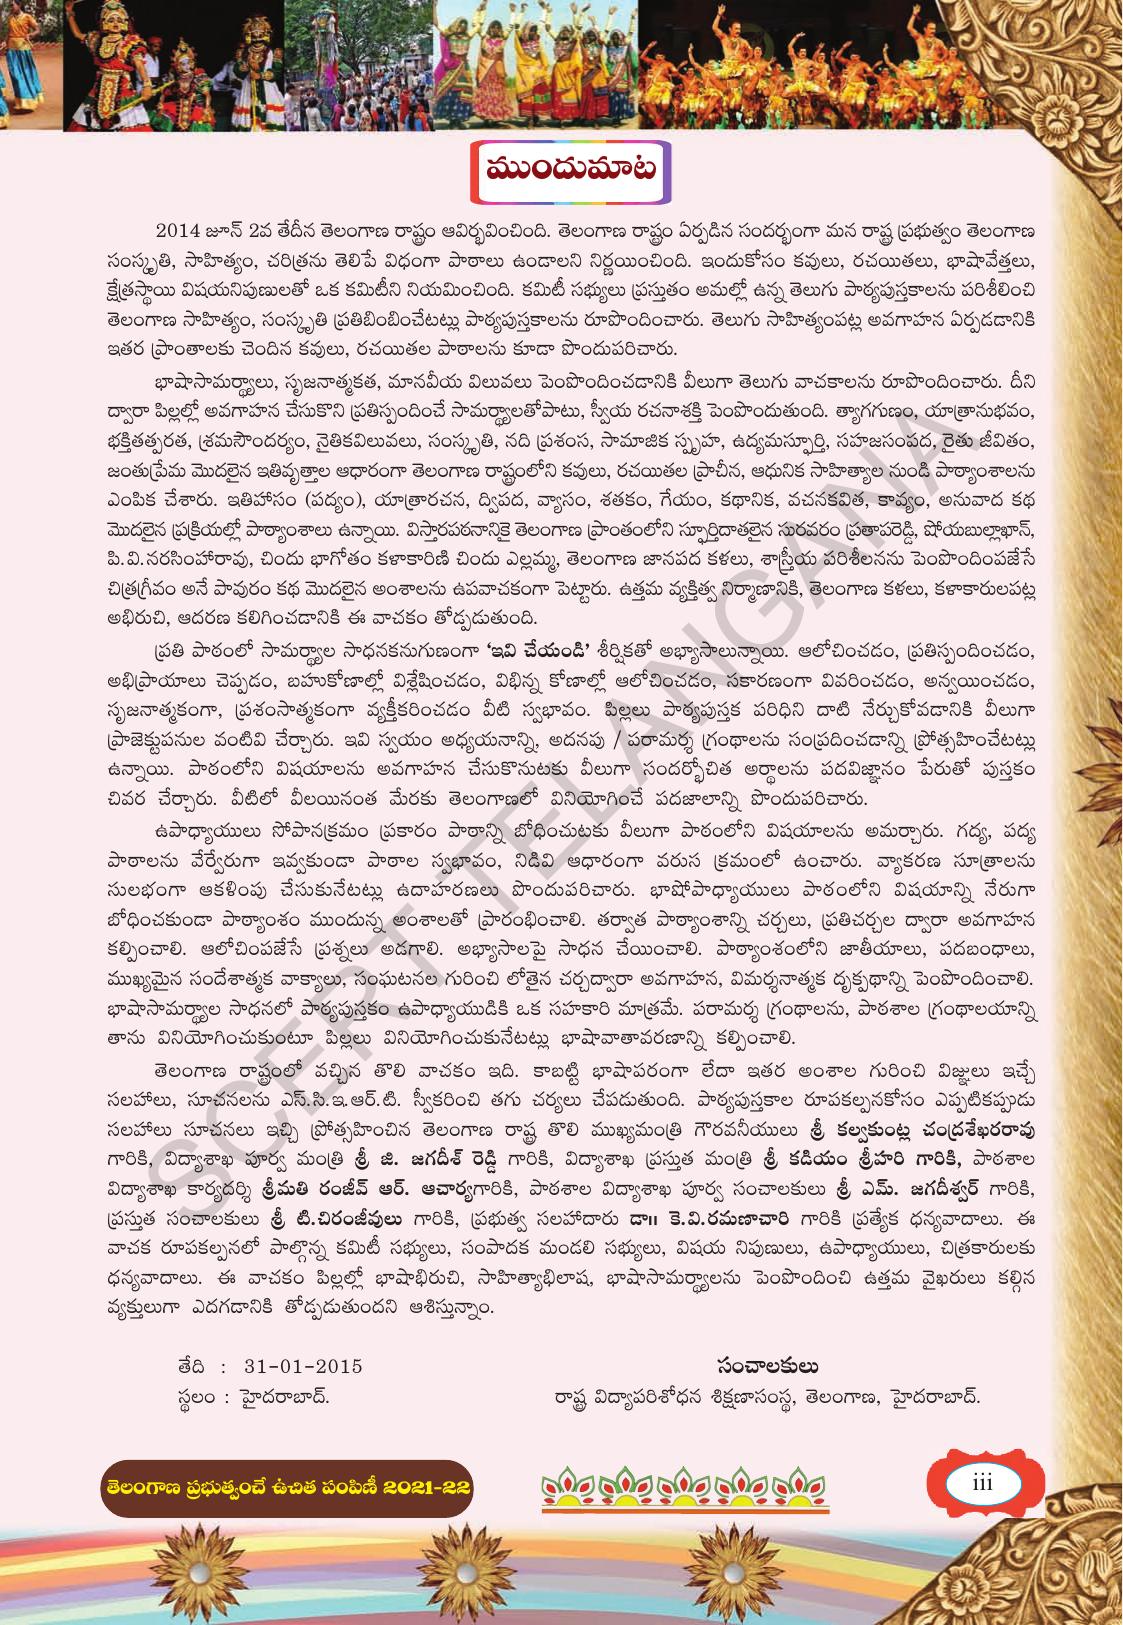 ముందుమాట
2014 జూన్ 2వ తేదీన తెలంగాణ రాష్ట్రం ఆవిర్భవించింది. తెలంగాణ రాష్ట్రం ఏర్పడిన సందర్భంగా మన రాష్ట్ర ప్రభుత్వం తెలంగాణ
సంస్కృతి, సాహిత్యం, చరిత్రను తెలిపే విధంగా పాఠాలు ఉండాలని నిర్ణయించింది. ఇందుకోసం కవులు, రచయితలు, భాషావేత్తలు,
క్షేత్రస్థాయి విషయనిపుణులతో ఒక కమిటీని నియమించింది. కమిటీ సభ్యులు ప్రస్తుతం అమల్లో ఉన్న తెలుగు పాఠ్యపుస్తకాలను పరిశీలించి
తెలంగాణ సాహిత్యం, సంస్కృతి ప్రతిబింబించేటట్లు పాఠ్యపుస్తకాలను రూపొందించారు. తెలుగు సాహిత్యంపట్ల అవగాహన ఏర్పడడానికి
ఇతర ప్రాంతాలకు చెందిన కవులు, రచయితల పాఠాలను కూడా పొందుపరిచారు.
భాషాసామర్థ్యాలు, సృజనాత్మకత, మానవీయ విలువలు పెంపొందించడానికి వీలుగా తెలుగు వాచకాలను రూపొందించారు. దీని
ద్వారా పిల్లల్లో అవగాహన చేసుకొని ప్రతిస్పందించే సామర్థ్యాలతోపాటు, స్వీయ రచనాశక్తి పెంపొందుతుంది. త్యాగగుణం, యాత్రానుభవం,
భక్తితత్పరత, శ్రమసౌందర్యం, నైతికవిలువలు, సంస్కృతి, నది ప్రశంస, సామాజిక స్పృహ, ఉద్యమస్ఫూర్తి, సహజసంపద, రైతు జీవితం,
జంతుప్రేమ మొదలైన ఇతివృత్తాల ఆధారంగా తెలంగాణ రాష్ట్రంలోని కవులు, రచయితల ప్రాచీన, ఆధునిక సాహిత్యాల నుండి పాఠ్యాంశాలను
ఎంపిక చేశారు. ఇతిహాసం (పద్యం), యాత్రారచన, ద్విపద, వ్యాసం, శతకం, గేయం, కథానిక, వచనకవిత, కావ్యం, అనువాద కథ
మొదలైన ప్రక్రియల్లో పాఠ్యాంశాలు ఉన్నాయి. విస్తారపఠనానికై తెలంగాణ ప్రాంతంలోని స్ఫూర్తిదాతలైన సురవరం ప్రతాపరెడ్డి, షోయబుల్లాఖాన్,
పి.వి.నరసింహారావు, చిందు భాగోతం కళాకారిణి చిందు ఎల్లమ్మ, తెలంగాణ జానపద కళలు, శాస్త్రీయ పరిశీలనను పెంపొందింపజేసే
చిత్రగ్రీవం అనే పావురం కథ మొదలైన అంశాలను ఉపవాచకంగా పెట్టారు. ఉత్తమ వ్యక్తిత్వ నిర్మాణానికి, తెలంగాణ కళలు, కళాకారులపట్ల
అభిరుచి, ఆదరణ కలిగించడానికి ఈ వాచకం తోడ్పడుతుంది.
ప్రతి పాఠంలో సామర్థ్యాల సాధనకనుగుణంగా ‘ఇవి చేయండి’ శీర్షికతో అభ్యాసాలున్నాయి. ఆలోచించడం, ప్రతిస్పందించడం,
అభిప్రాయాలు చెప్పడం, బహుకోణాల్లో విశ్లేషించడం, విభిన్న కోణాల్లో ఆలోచించడం, సకారణంగా వివరించడం, అన్వయించడం,
సృజనాత్మకంగా, ప్రశంసాత్మకంగా వ్యక్తీకరించడం వీటి స్వభావం. పిల్లలు పాఠ్యపుస్తక పరిధిని దాటి నేర్చుకోవడానికి వీలుగా
ప్రాజెక్టుపనుల వంటివి చేర్చారు. ఇవి స్వయం అధ్యయనాన్ని, అదనపు / పరామర్శ గ్రంథాలను సంప్రదించడాన్ని ప్రోత్సహించేటట్లు
ఉన్నాయి. పాఠంలోని విషయాలను అవగాహన చేసుకొనుటకు వీలుగా సందర్భోచిత అర్థాలను పదవిజ్ఞానం పేరుతో పుస్తకం
చివర చేర్చారు. వీటిలో వీలయినంత మేరకు తెలంగాణలో వినియోగించే పదజాలాన్ని పొందుపరిచారు.
ఉపాధ్యాయులు సోపానక్రమం ప్రకారం పాఠాన్ని బోధించుటకు వీలుగా పాఠంలోని విషయాలను అమర్చారు. గద్య, పద్య
పాఠాలను వేర్వేరుగా ఇవ్వకుండా పాఠాల స్వభావం, నిడివి ఆధారంగా వరుస క్రమంలో ఉంచారు. వ్యాకరణ సూత్రాలను
సులభంగా ఆకళింపు చేసుకునేటట్లు ఉదాహరణలు పొందుపరిచారు. భాషోపాధ్యాయులు పాఠంలోని విషయాన్ని నేరుగా
బోధించకుండా పాఠ్యాంశం ముందున్న అంశాలతో ప్రారంభించాలి. తర్వాత పాఠ్యాంశాన్ని చర్చలు, ప్రతిచర్చల ద్వారా అవగాహన
కల్పించాలి. ఆలోచింపజేసే ప్రశ్నలు అడగాలి. అభ్యాసాలపై సాధన చేయించాలి. పాఠ్యాంశంలోని జాతీయాలు, పదబంధాలు,
ముఖ్యమైన సందేశాత్మక వాక్యాలు, సంఘటనల గురించి లోతైన చర్చద్వారా అవగాహన, విమర్శనాత్మక దృక్పథాన్ని పెంపొందించాలి.
భాషాసామర్థ్యాల సాధనలో పాఠ్యపుస్తకం ఉపాధ్యాయుడికి ఒక సహకారి మాత్రమే. పరామర్శ గ్రంథాలను, పాఠశాల గ్రంథాలయాన్ని
తాను వినియోగించుకుంటూ పిల్లలు వినియోగించుకునేటట్లు భాషావాతావరణాన్ని కల్పించాలి.
తెలంగాణ రాష్ట్రంలో వచ్చిన తొలి వాచకం ఇది. కాబట్టి భాషాపరంగా లేదా ఇతర అంశాల గురించి విజ్ఞులు ఇచ్చే
సలహాలు, సూచనలను ఎస్.సి.ఇ.ఆర్.టి. స్వీకరించి తగు చర్యలు చేపడుతుంది. పాఠ్యపుస్తకాల రూపకల్పనకోసం ఎప్పటికప్పుడు
సలహాలు సూచనలు ఇచ్చి ప్రోత్సహించిన తెలంగాణ రాష్ట్ర తొలి ముఖ్యమంత్రి గౌరవనీయులు శ్రీ కల్వకుంట్ల చంద్రశేఖరరావు
గారికి, విద్యాశాఖ పూర్వ మంత్రి శ్రీ జి. జగదీశ్ రెడ్డి గారికి, విద్యాశాఖ ప్రస్తుత మంత్రి శ్రీ కడియం శ్రీహరి గారికి, పాఠశాల
విద్యాశాఖ కార్యదర్శి శ్రీమతి రంజీవ్ ఆర్. ఆచార్యగారికి, పాఠశాల విద్యాశాఖ పూర్వ సంచాలకులు శ్రీ ఎమ్. జగదీశ్వర్ గారికి,
ప్రస్తుత సంచాలకులు శ్రీ టి.చిరంజీవులు గారికి, ప్రభుత్వ సలహాదారు డా॥ కె.వి.రమణాచారి గారికి ప్రత్యేక ధన్యవాదాలు. ఈ
వాచక రూపకల్పనలో పాల్గొన్న కమిటీ సభ్యులు, సంపాదక మండలి సభ్యులు, విషయ నిపుణులు, ఉపాధ్యాయులు, చిత్రకారులకు
ధన్యవాదాలు. ఈ వాచకం పిల్లల్లో భాషాభిరుచి, సాహిత్యాభిలాష, భాషాసామర్థ్యాలను పెంపొందించి ఉత్తమ వైఖరులు కల్గిన
వ్యక్తులుగా ఎదగడానికి తోడ్పడుతుందని ఆశిస్తున్నాం.
తేది : 31-01-2015
స్థలం : హైదరాబాద్.
సంచాలకులు
రాష్ట్ర విద్యాపరిశోధన శిక్షణాసంస్థ, తెలంగాణ, హైదరాబాద్.
తెలంగాణ ప్రభుత్వంచే ఉచిత పంపిణీ 2021-22
iii
SCERT TELANGANA